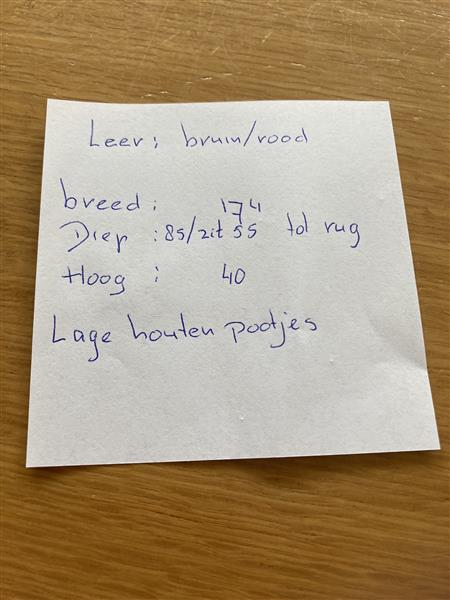 Leer: bruin/rood
breed: 174
Diep: 85/zit 55 tot rug
Hoog: 40
Lage houten pootjes